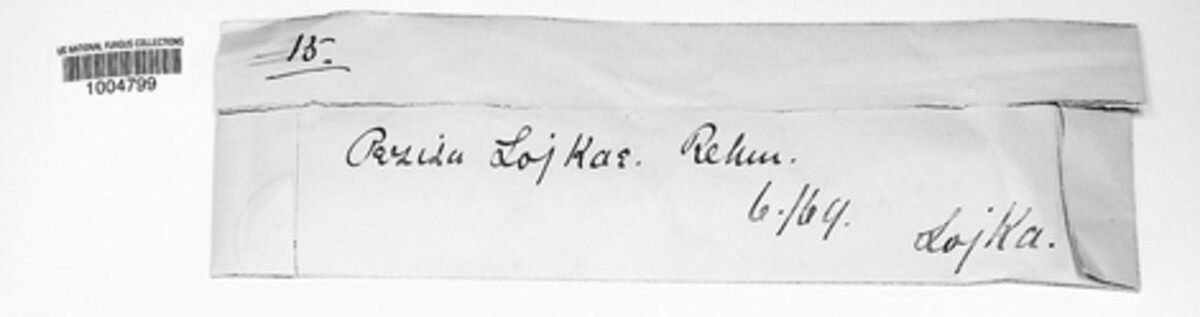 US NATIONAL FUNGUS COLLECTIONS
1004799
15.
Peziza Lojkae. Rehm.
6./69.
Lojka.